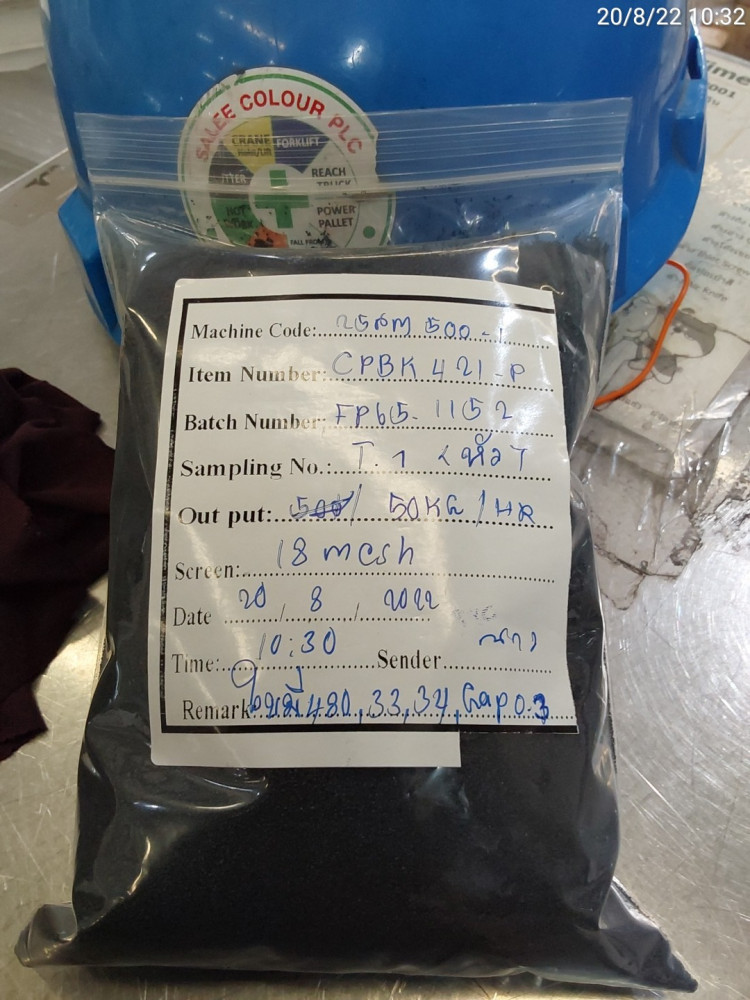 20/8/22 10:32
SALEE COLOUR PLC
CRANE
FORKLIFT
REACH
TRUCK
POWER
PALLET
HOT
Machine Code:
Item Number: CPBK 421-P
Batch Number: FP65-1152
Sampling No.: T.1
Out put: 500/ 50KG/HR
Screen: 18 mesh
Date 20/8/2022
Time: 10:30 Sender
Remark 480,33,34, Gap 0.3